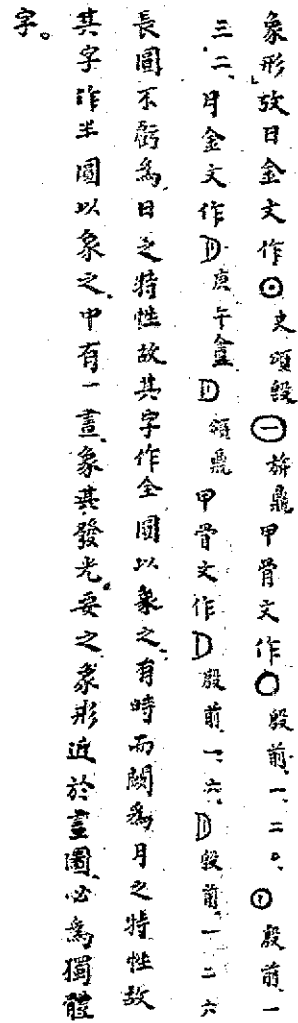 象形、攷日金文作☉史頌𣪘㊀旂鼎甲骨文作〇殷前、一、二〇、殷前、一
三、二、月金文作庚午盦頌鼎甲骨文作殷前、一、六、殷前、一二六
長圓不虧為日之特性故其字作全圓以象之、有時而闕為月之特性故
其字作半圓以象之、中有一畫、象其發光。要之象形近於畫圖、必為獨體
字。